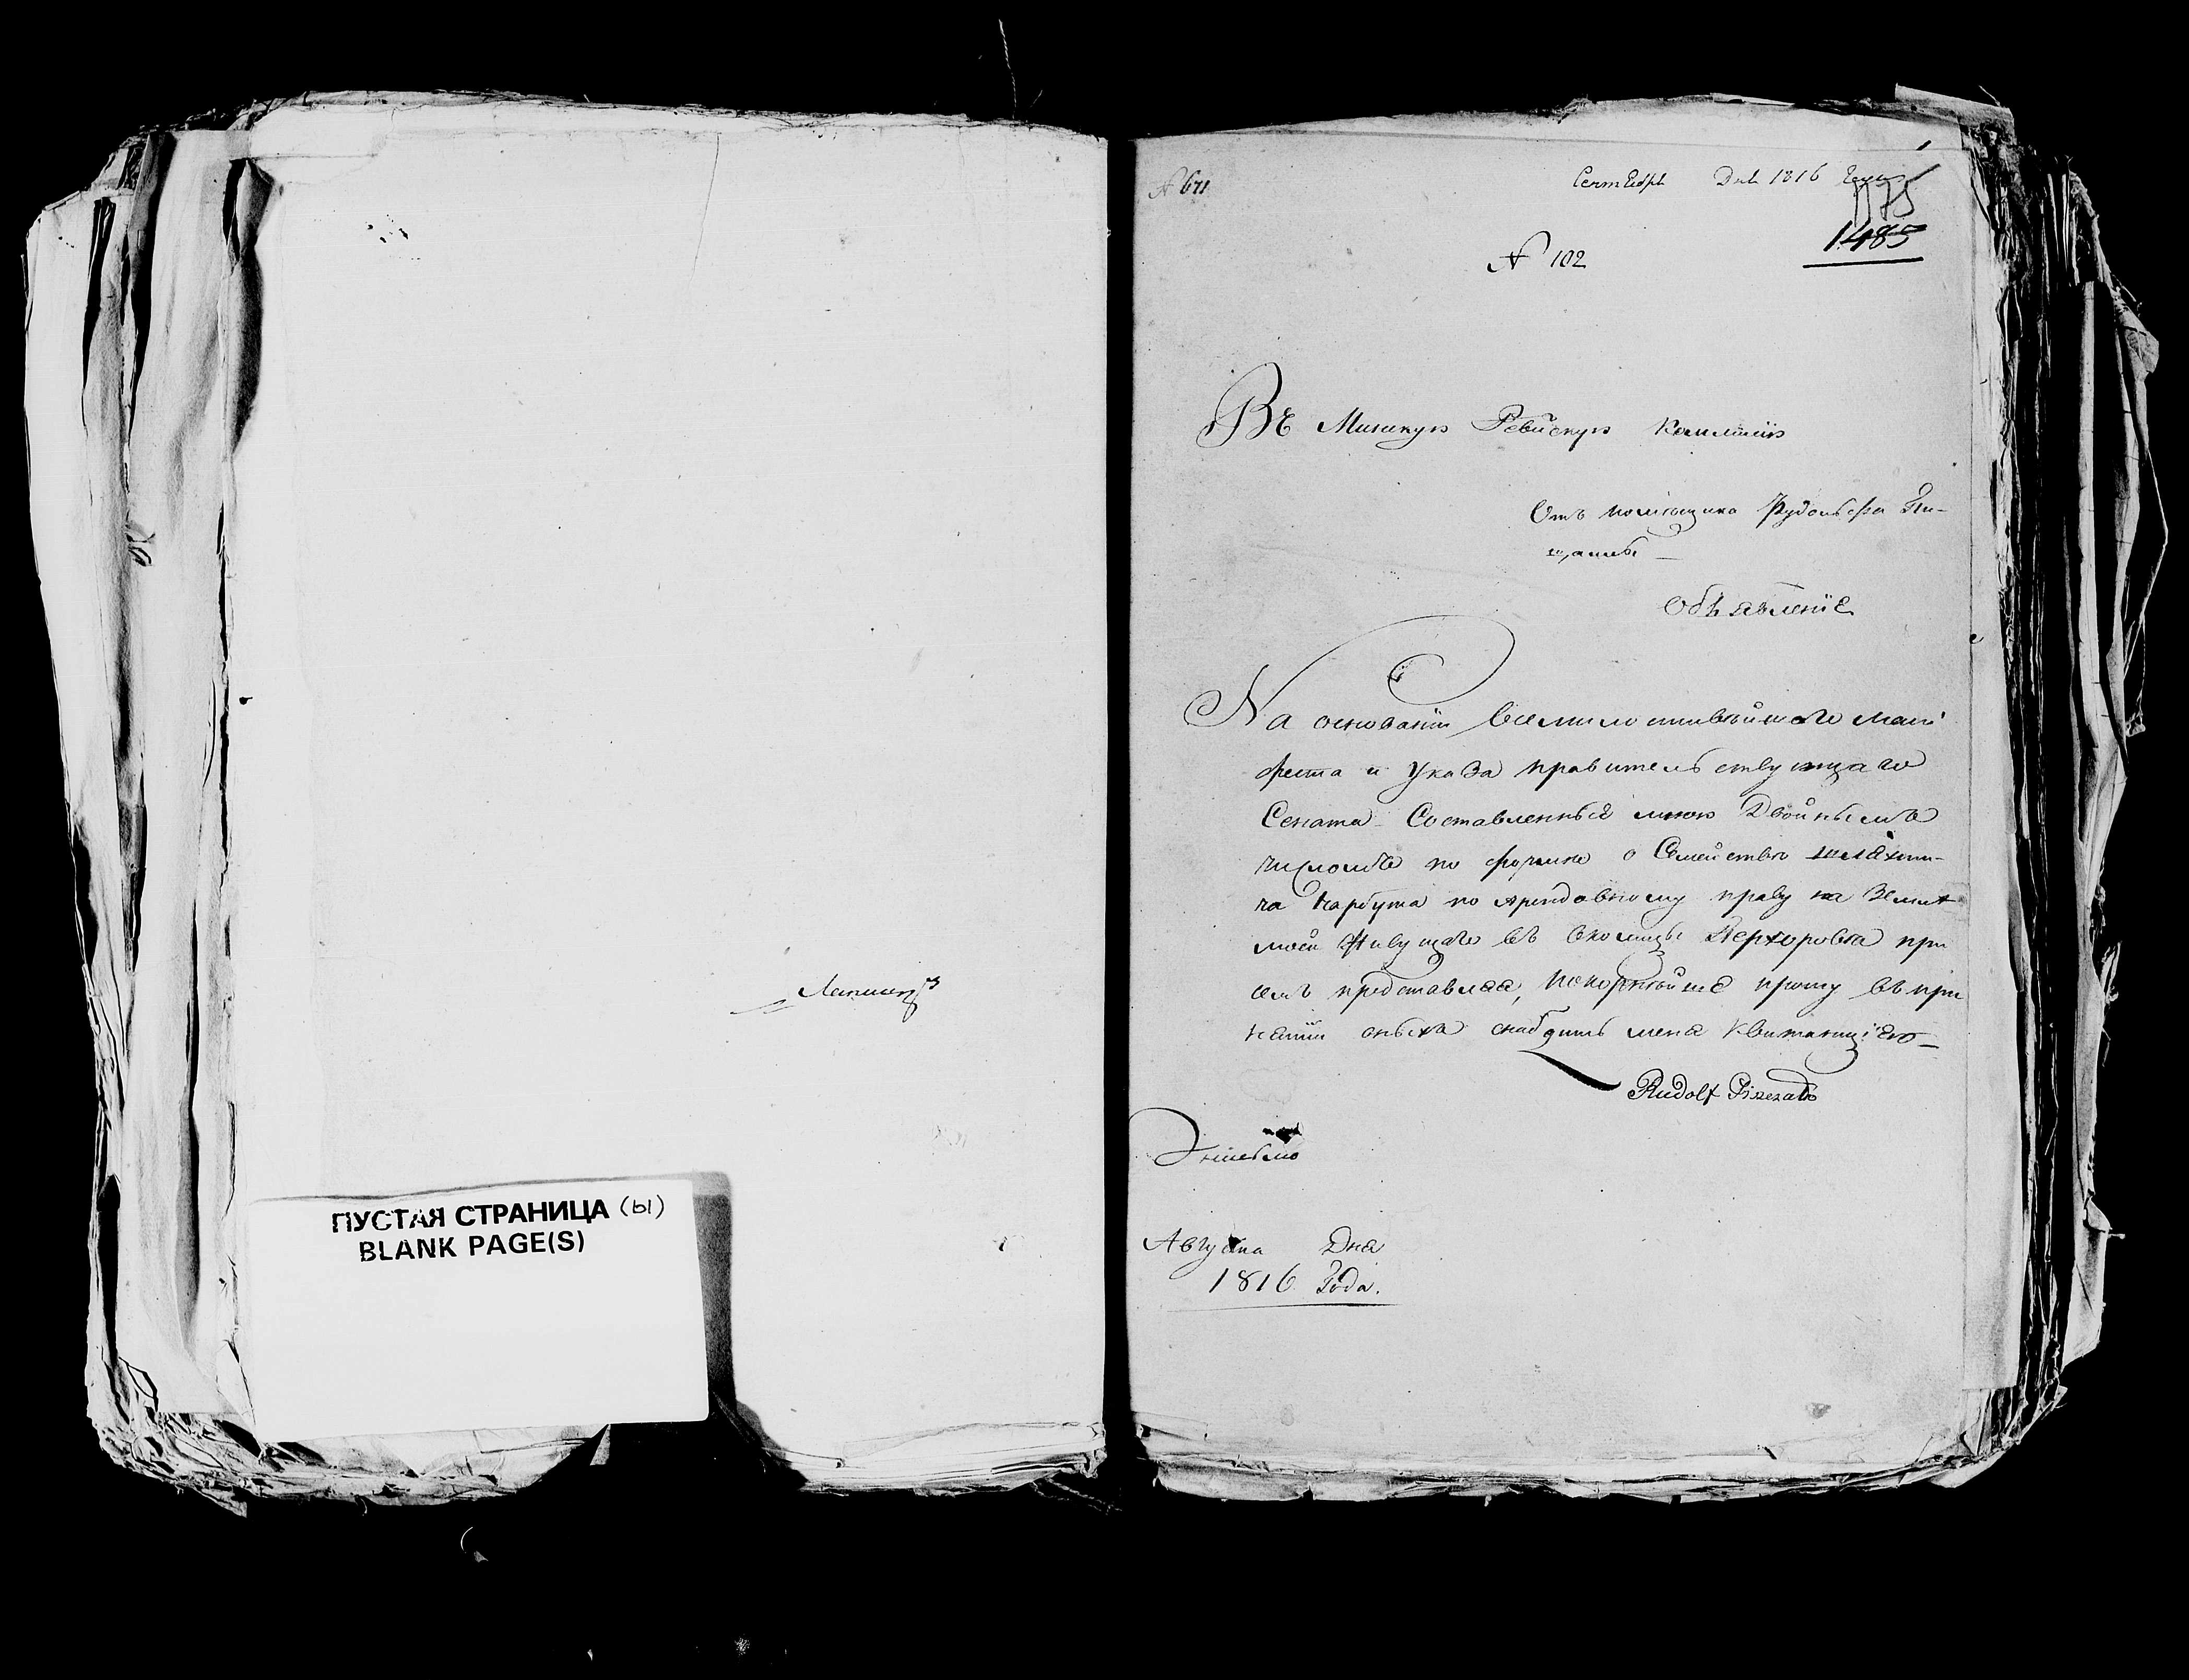 Лапицкъ
ПУСТАЯ СТРАНИЦА (ы)
BLANK PAGE(S)
№ 671
Сентября Дня 1816 года
1175
1485
№ 102
Въ Минскую Ревизскую Коммисію
Отъ помѣщика Рудольфа Пи-
щаллы
Объявленіе
На основаніи Всемилостивѣйшаго мани
феста и Указа правительствующаго
Сената Составленныя мною Двойнымъ
числомъ по формѣ о Семействѣ шляхти-
ча Нарбута по арендовному праву на Землѣ
моей Живущаго въ околицы при
семъ представляя, покорнѣйше прошу въ при
нятіи оныхъ снабдить меня Квитанціею
Rudolf
Августа Дня
1816 Года.